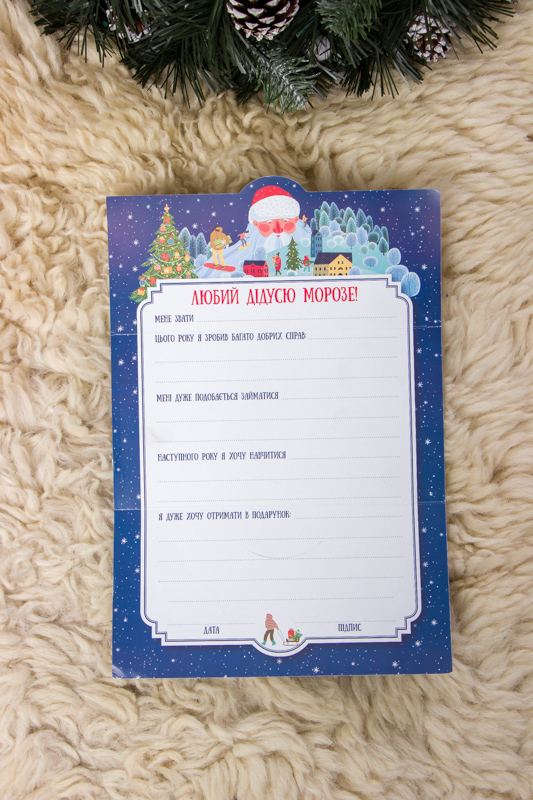 ЛЮБИЙ ДІДУСЮ МОРОЗЕ!
МЕНЕ ЗВАТИ
ЦЬОГО РОКУ Я ЗРОБИВ БАГАТО ДОБРИХ СПРАВ
МЕНІ ДУЖЕ ПОДОБАЄТЬСЯ ЗАЙМАТИСЯ
НАСТУПНОГО РОКУ Я ХОЧУ НАВЧИТИСЯ
Я ДУЖЕ ХОЧУ ОТРИМАТИ В ПОДАРУНОК:
ДАТА ПІДПИС